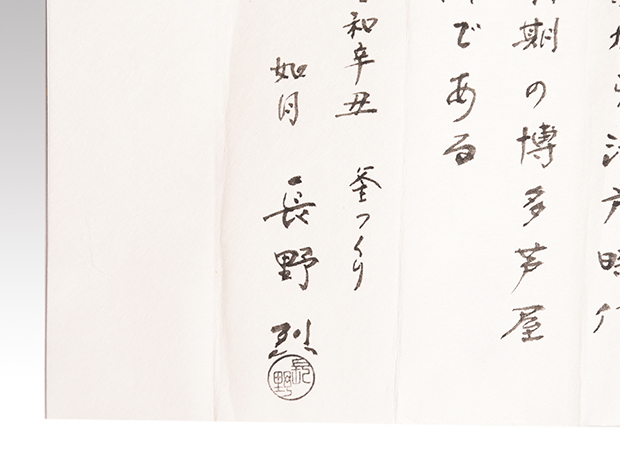 から江戸時代
期の博多芦屋
である
和辛丑 釜つくり
如月 長野 烈
長野